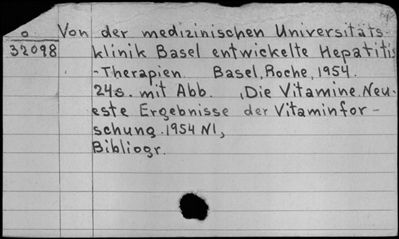 o Von der medizinischen Universitäts-
32098 klinik Basel entwickelte Hepatitis
-Therapien. Basel, Roche, 1954.
24s. mit Abb. ,Die Vitamine. Neu-
este Ergebnisse der Vitaminfor-
schung. 1954 N1,
Bibliogr.